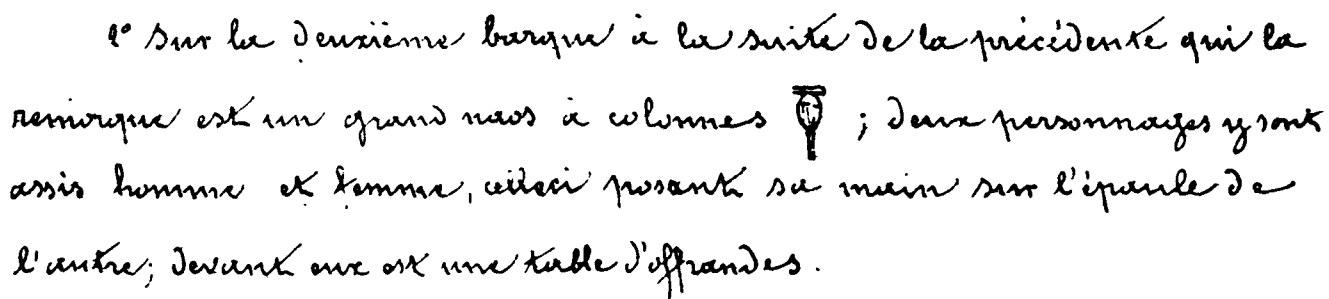 2° Sur la deuxième barque à la suite de la précédente qui la
remorque est un grand naos à colonnes ; deux personnages y sont
assis homme et femme, celleci posant sa main sur l'épaule de
l'autre; devant eux est une table d'offrandes.